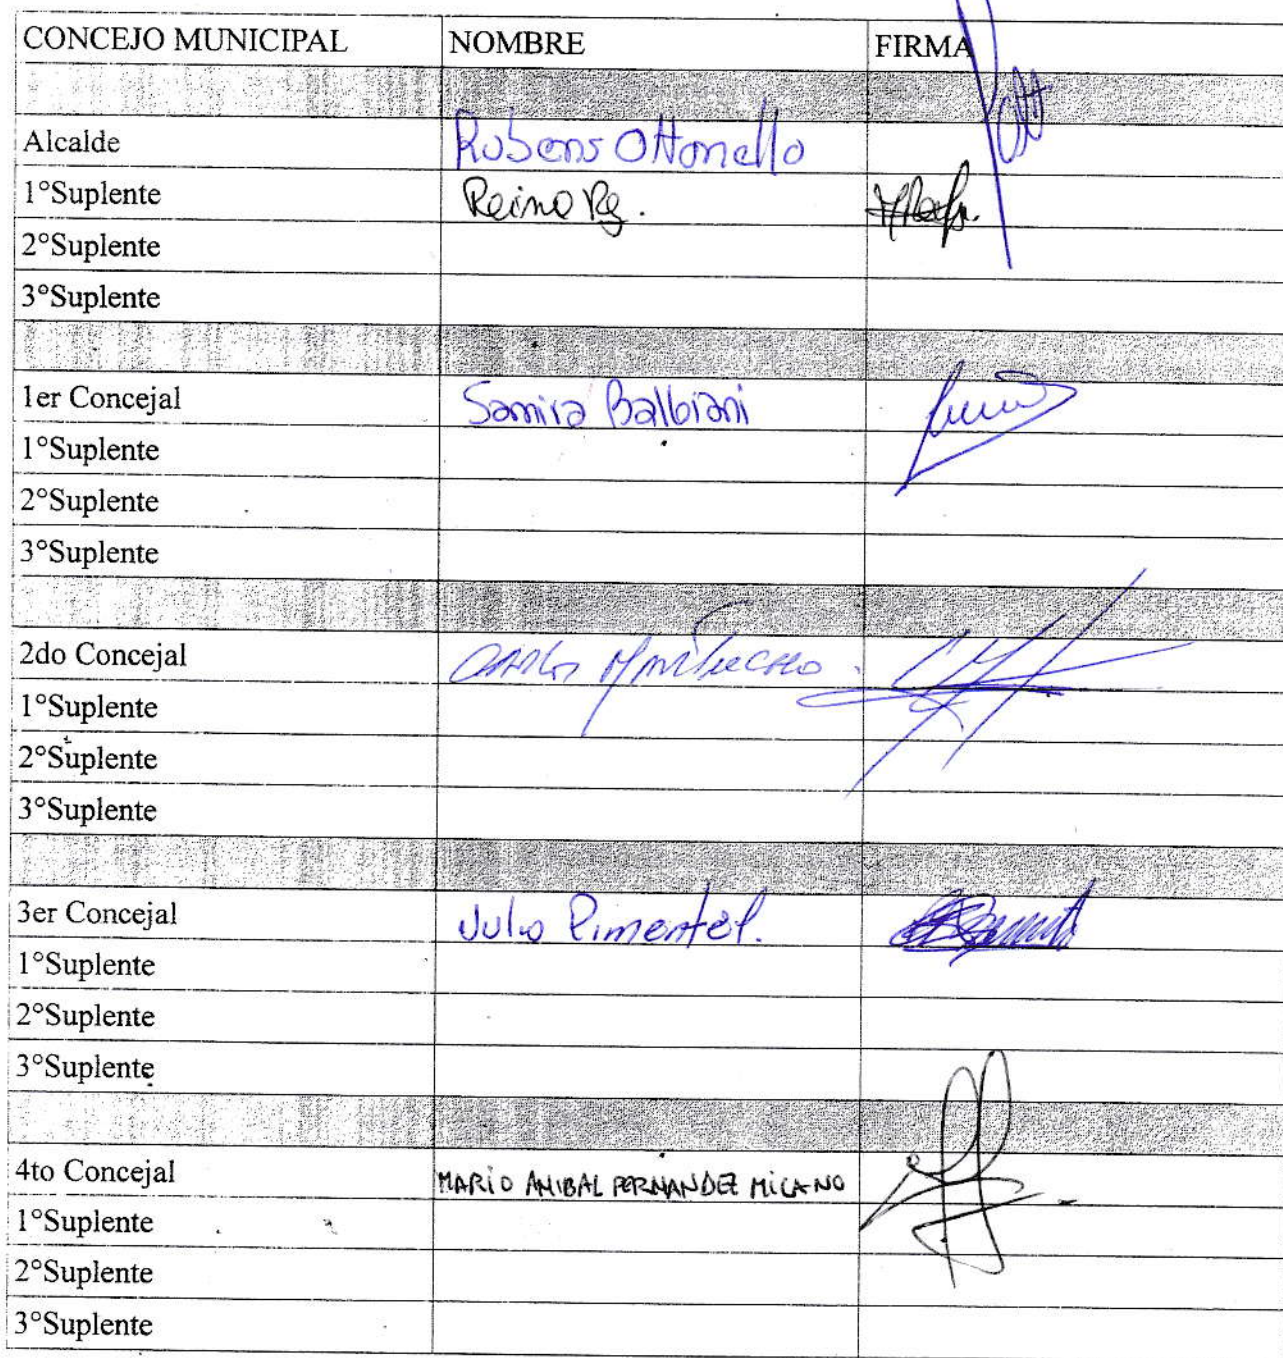 CONCEJO MUNICIPAL NOMBRE FIRMA
Alcalde Rubens Ottonello
1°Suplente Reina
2°Suplente
3°Suplente
1er Concejal Samira Balbiani
1°Suplente
2°Suplente
3°Suplente
2do Concejal
1°Suplente
2°Suplente
3°Suplente
3er Concejal Julio Pimentel.
1°Suplente
2°Suplente
3°Suplente
4to Concejal MARIO ANIBAL FERNANDEZ
1°Suplente
2°Suplente
3°Suplente